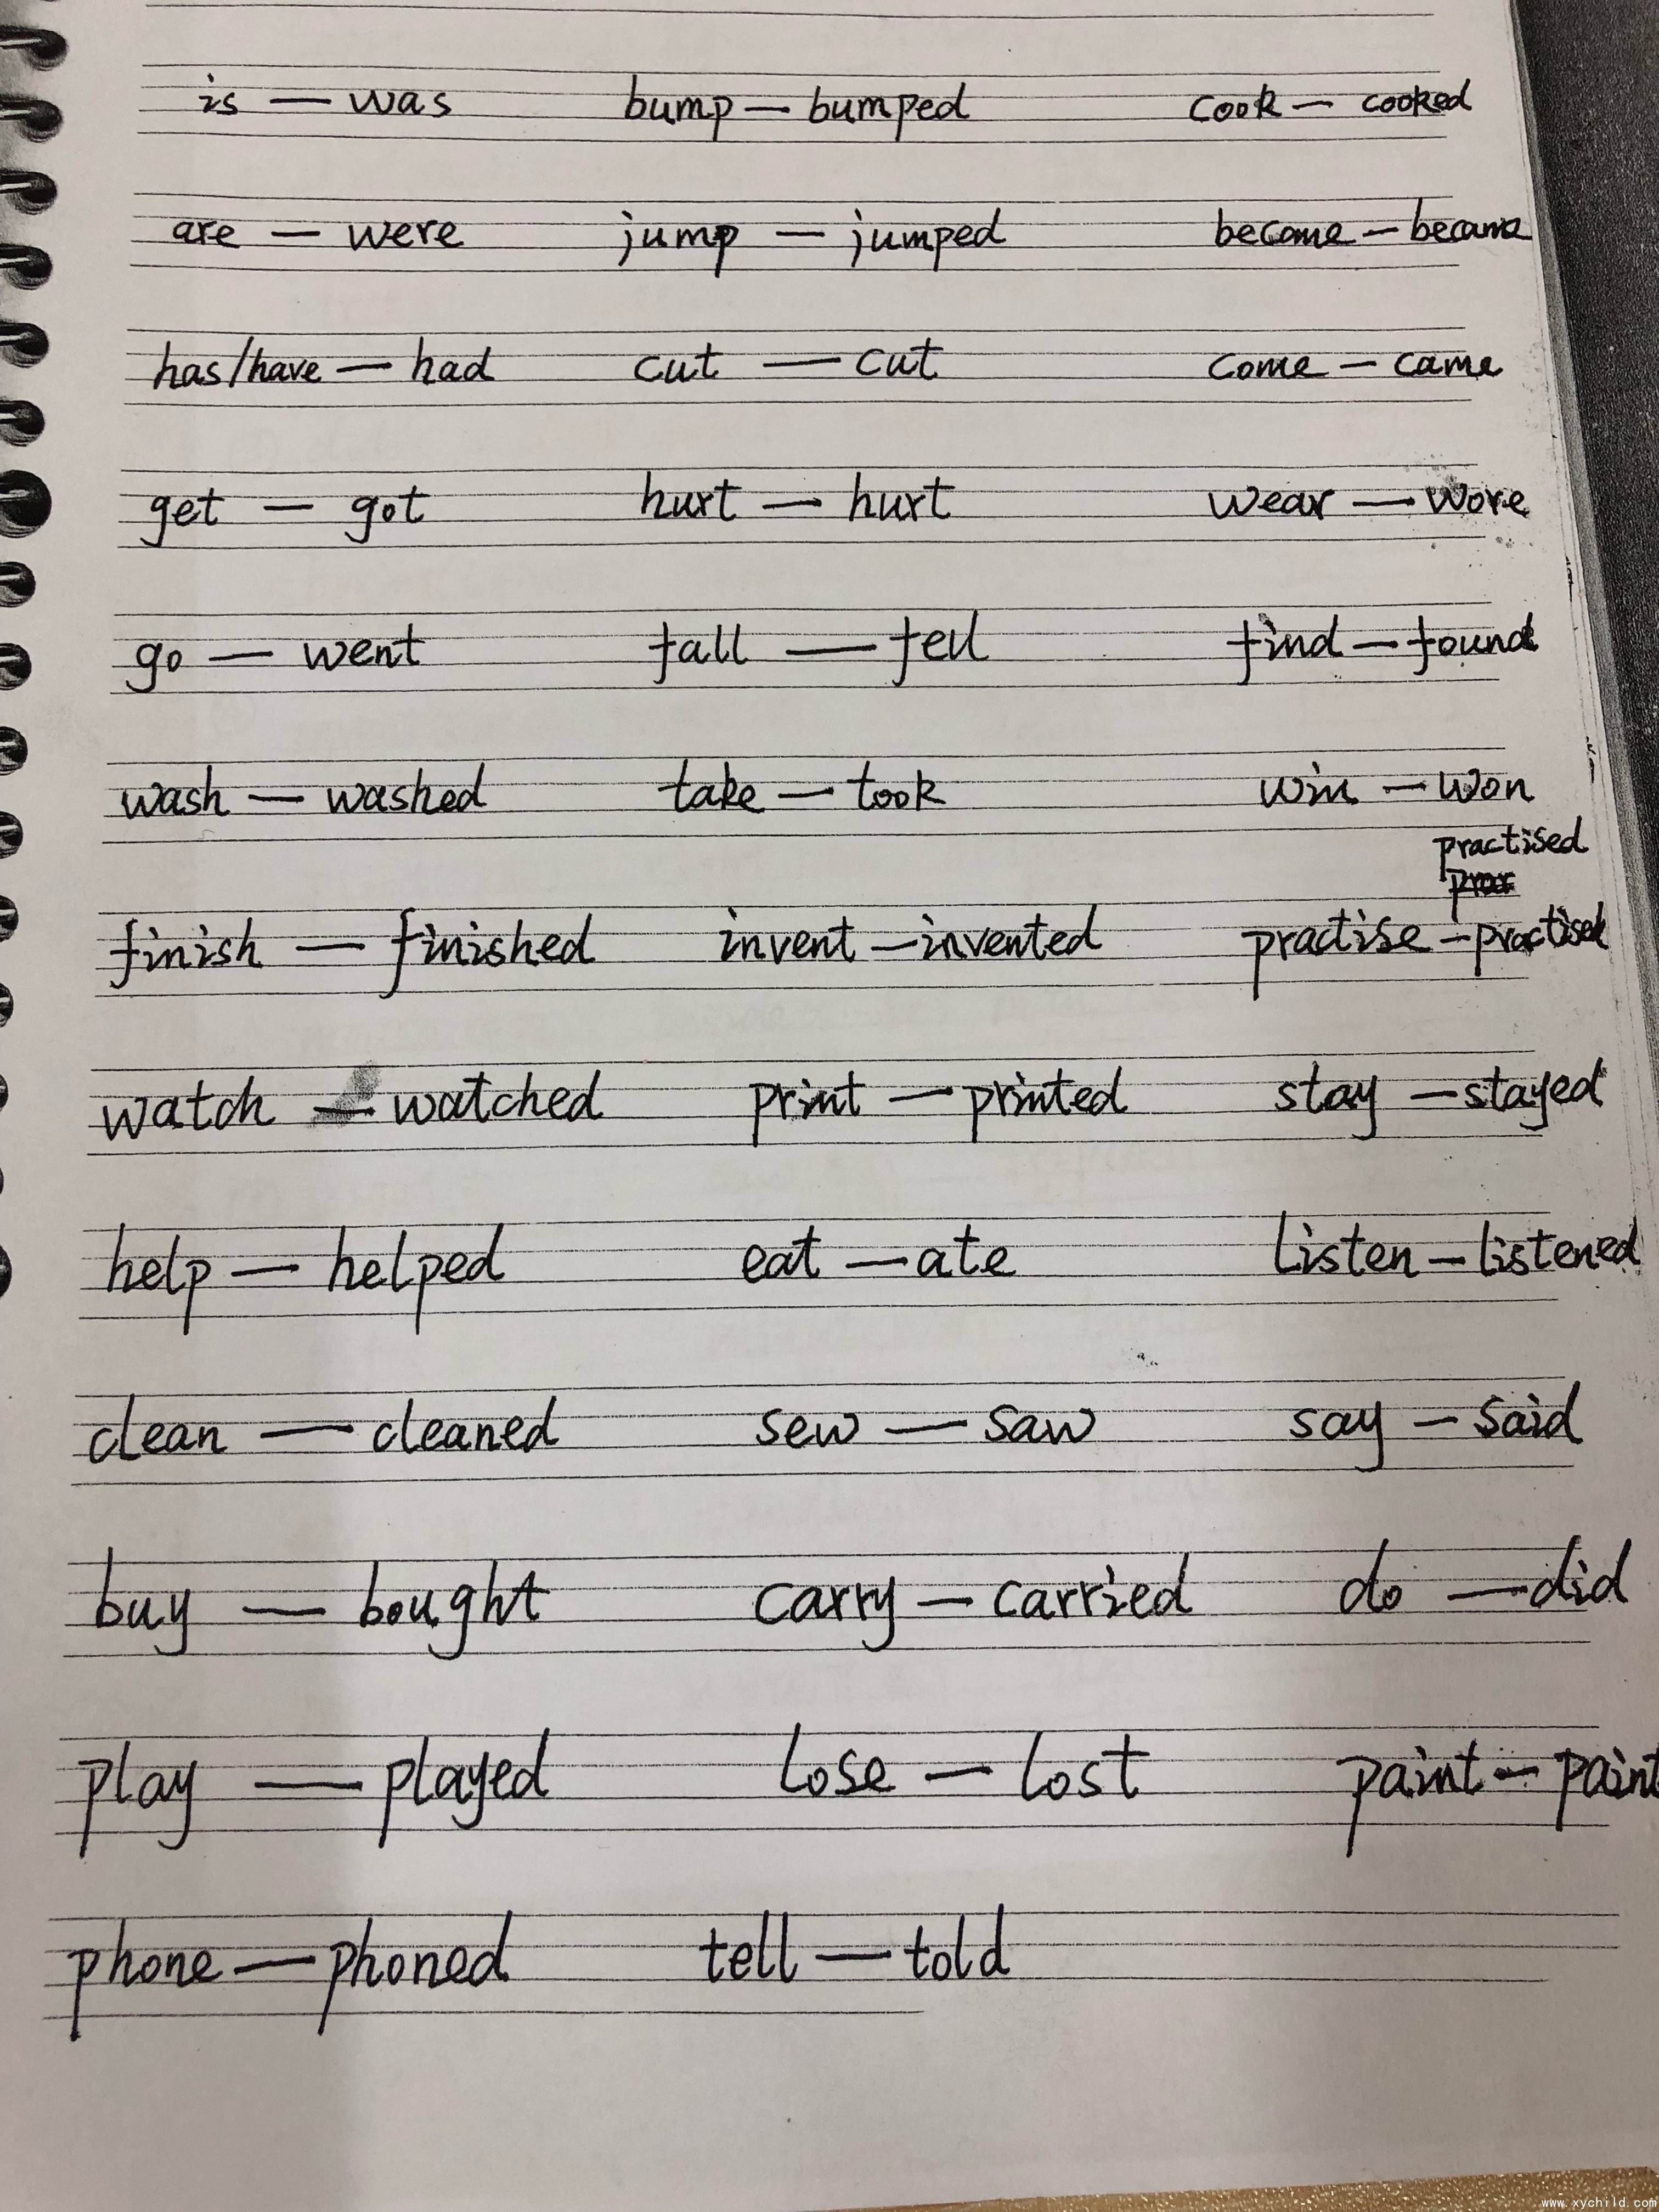 is — was bump — bumped cook — cooked
are — were jump — jumped become — became
has/have — had cut — cut come — came
get — got hurt — hurt wear — wore
go — went fall — fell find — found
wash — washed take — took win — won
practised
finish — finished invent — invented practise — practised
watch — watched print — printed stay — stayed
help — helped eat — ate listen — listened
clean — cleaned sew — saw say — said
buy — bought carry — carried do — did
play — played lose — lost paint — paint
phone — phoned tell — told
www.xychild.com